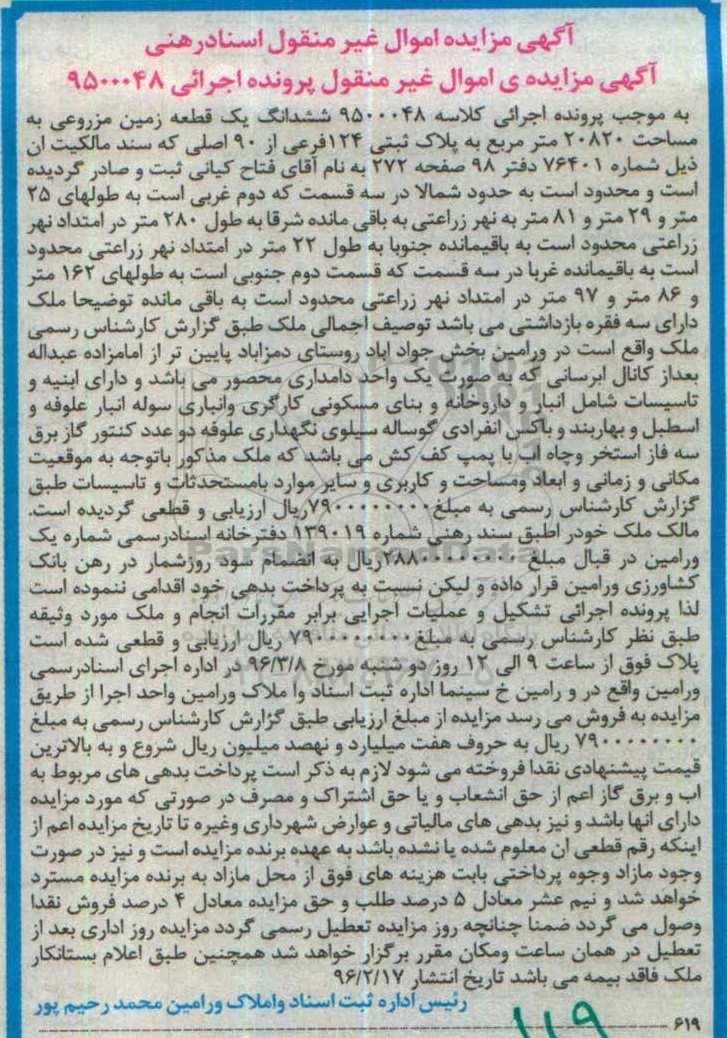 آگهی مزایده اموال غیر منقول اسنادرهنی
آگهی مزایده ی اموال غیر منقول پرونده اجرائی ۹۵۰۰۰۴۸
به موجب پرونده اجرائی کلاسه ۹۵۰۰۰۴۸ ششدانگ یک قطعه زمین مزروعی به
مساحت ۲۰۸۲۰ متر مربع به پلاک ثبتی ۱۲۴فرعی از ۹۰ اصلی که سند مالکیت ان
ذیل شماره ۷۶۴۰۱ دفتر ۹۸ صفحه ۲۷۲ به نام آقای فتاح کیانی ثبت و صادر گردیده
است و محدود است به حدود شمالا در سه قسمت که دوم غربی است به طولهای ۲۵
متر و ۲۹ متر و ۸۱ متر به نهر زراعتی به باقی مانده شرقا به طول ۲۸۰ متر در امتداد نهر
زراعتی محدود است به باقیمانده جنوبا به طول ۲۲ متر در امتداد نهر زراعتی محدود
است به باقیمانده غربا در سه قسمت که قسمت دوم جنوبی است به طولهای ۱۶۲ متر
و ۸۶ متر و ۹۷ متر در امتداد نهر زراعتی محدود است به باقی مانده توضیحا ملک
دارای سه فقره بازداشتی می باشد توصیف اجمالی ملک طبق گزارش کارشناس رسمی
ملک واقع است در ورامین بخش جواد اباد روستای دمزاباد پایین تر از امامزاده عبداله
بعداز کانال ابرسانی که به صورت یک واحد دامداری محصور می باشد و دارای ابنیه و
تاسیسات شامل انبار و داروخانه و بنای مسکونی کارگری وانباری سوله انبار علوفه و
اسطبل و بهاربند و باکس انفرادی گوساله سیلوی نگهداری علوفه دو عدد کنتور گاز برق
سه فاز استخر وچاه اب با پمپ کف کش می باشد که ملک مذکور باتوجه به موقعیت
مکانی و زمانی و ابعاد ومساحت و کاربری و سایر موارد بامستحدثات و تاسیسات طبق
گزارش کارشناس رسمی به مبلغ۷۹۰۰۰۰۰۰۰۰ریال ارزیابی و قطعی گردیده است.
مالک ملک خودر اطبق سند رهنی شماره ۱۳۹۰۱۹ دفترخانه اسنادرسمی شماره یک
ورامین در قبال مبلغ ریال به انضمام سود روزشمار در رهن بانک
کشاورزی ورامین قرار داده و لیکن نسبت به پرداخت بدهی خود اقدامی ننموده است
لذا پرونده اجرائی تشکیل و عملیات اجرایی برابر مقررات انجام و ملک مورد وثیقه
طبق نظر کارشناس رسمی به مبلغ۷۹۰۰۰۰۰۰۰۰ ریال ارزیابی و قطعی شده است
پلاک فوق از ساعت ۹ الی ۱۲ روز دو شنبه مورخ ۹۶/۳/۸ در اداره اجرای اسنادرسمی
ورامین واقع در و رامین خ سینما اداره ثبت اسناد وا ملاک ورامین واحد اجرا از طریق
مزایده به فروش می رسد مزایده از مبلغ ارزیابی طبق گزارش کارشناس رسمی به مبلغ
۷۹۰۰۰۰۰۰۰۰ ریال به حروف هفت میلیارد و نهصد میلیون ریال شروع و به بالاترین
قیمت پیشنهادی نقدا فروخته می شود لازم به ذکر است پرداخت بدهی های مربوط به
اب و برق گاز اعم از حق انشعاب و یا حق اشتراک و مصرف در صورتی که مورد مزایده
دارای انها باشد و نیز بدهی های مالیاتی و عوارض شهرداری وغیره تا تاریخ مزایده اعم از
اینکه رقم قطعی ان معلوم شده یا نشده باشد به عهده برنده مزایده است و نیز در صورت
وجود مازاد وجوه پرداختی بابت هزینه های فوق از محل مازاد به برنده مزایده مسترد
خواهد شد و نیم عشر معادل ۵ درصد طلب و حق مزایده معادل ۴ درصد فروش نقدا
وصول می گردد ضمنا چنانچه روز مزایده تعطیل رسمی گردد مزایده روز اداری بعد از
تعطیل در همان ساعت ومکان مقرر برگزار خواهد شد همچنین طبق اعلام بستانکار
ملک فاقد بیمه می باشد تاریخ انتشار ۹۶/۲/۱۷
رئیس اداره ثبت اسناد واملاک ورامین محمد رحیم پور
۶۱۹
۱۱۹
ParsNamadData